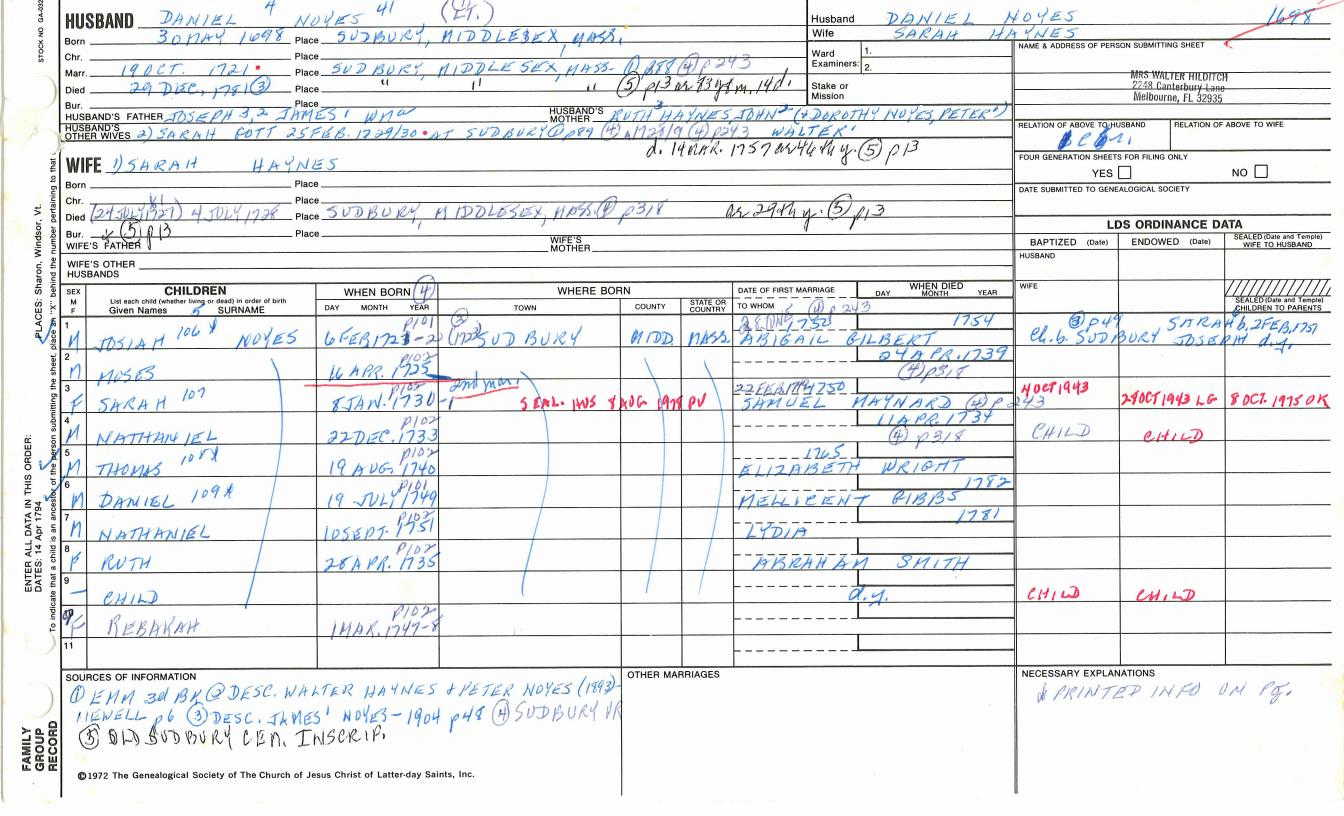 HUSBAND DANIEL 4 NOYES 41 (LT.)
Born 30 MAY 1698 Place SUDBURY, MIDDLESEX, MASS.
Chr. Place
Marr. 19 OCT. 1721 Place SUDBURY, MIDDLESEX, MASS. ① p89 ④ p243
Died 29 DEC, 1781 ③ Place " " " ⑤ p13
Bur. Place
HUSBAND'S FATHER JOSEPH 3, 2 JAMES'
HUSBAND'S MOTHER RUTH 3 HAYNES, JOHN 2 (+ DOROTHY NOYES, PETER
HUSBAND'S OTHER WIVES 2) SARAH GOTT 25 FEB. 1729/30 AT SUDBURY p89 ④ p243 WALTER'
d. 19 MAR. 1757 ⑤ p13
WIFE 1) SARAH HAYNES
Born Place
Chr. Place
Died (24 JULY 1727) 4 JULY 1728 Place SUDBURY, MIDDLESEX, MASS. ④ p318 ⑤ p13
Bur. ⑤ p13 Place
WIFE'S FATHER WIFE'S MOTHER
WIFE'S OTHER HUSBANDS
Husband DANIEL NOYES 1698
Wife SARAH HAYNES
Ward Examiners: 1.
2.
Stake or Mission
NAME & ADDRESS OF PERSON SUBMITTING SHEET
MRS WALTER HILDITCH
2248 Canterbury Lane
Melbourne, FL 32935
RELATION OF ABOVE TO HUSBAND RELATION OF ABOVE TO WIFE
FOUR GENERATION SHEETS FOR FILING ONLY
YES NO
DATE SUBMITTED TO GENEALOGICAL SOCIETY
LDS ORDINANCE DATA
BAPTIZED (Date) ENDOWED (Date) SEALED (Date and Temple) WIFE TO HUSBAND
HUSBAND
WIFE
SEALED (Date and Temple) CHILDREN TO PARENTS
SEX M F CHILDREN WHEN BORN ④ WHERE BORN DATE OF FIRST MARRIAGE WHEN DIED
List each child (whether living or dead) in order of birth
Given Names 5 SURNAME DAY MONTH YEAR TOWN COUNTY STATE OR COUNTRY TO WHOM DAY MONTH YEAR
1 M JOSIAH 106 NOYES 6 FEB 1721-2 p101 SUDBURY MIDD MASS. 1750 ④ p243 ABIGAIL GILBERT 1754 ③ p49 SARAH b, 2 FEB, 1751
Ch. b. SUDBURY JOSEPH d.y.
2 M MOSES 16 APR. 1725 p102 24 APR. 1739 ④ p318
3 F SARAH 107 8 JAN. 1730-1 p102 2nd mar. SEAL. HUS 8 AUG 1978 PV 22 FEB 1750 SAMUEL MAYNARD ④ p243 4 OCT 1943 29 OCT 1943 LG 8 OCT. 1975 OK
4 M NATHANIEL 22 DEC. 1733 p102 11 APR. 1734 ④ p318 CHILD CHILD
5 M THOMAS 108 19 AUG. 1740 p102 1765 ELIZABETH WRIGHT
6 M DANIEL 109 19 JULY 1749 p101 MELLICENT GIBBS 1782
7 M NATHANIEL 10 SEPT. 1751 p102 LYDIA 1781
8 F RUTH 28 APR. 1735 p102 ABRAHAM SMITH
9 – CHILD d.y. CHILD CHILD
10 F REBAKAH 1 MAR. 1747-8 p102
11
SOURCES OF INFORMATION
① EMM 3d BK ② DESC. WALTER HAYNES + PETER NOYES (1893)-
NEWELL p6 ③ DESC. JAMES' NOYES - 1904 p48 ④ SUDBURY VR
⑤ OLD SUDBURY CEM. INSCRIP.
OTHER MARRIAGES
NECESSARY EXPLANATIONS
PRINTED INFO ON PG.
©1972 The Genealogical Society of The Church of Jesus Christ of Latter-day Saints, Inc.
STOCK NO.
PLACES: Sharon, Windsor, Vt.
ENTER ALL DATA IN THIS ORDER:
DATES: 14 Apr 1794
To indicate that a child is an ancestor of the person submitting the sheet, place an "X" behind the number pertaining to that
FAMILY GROUP RECORD